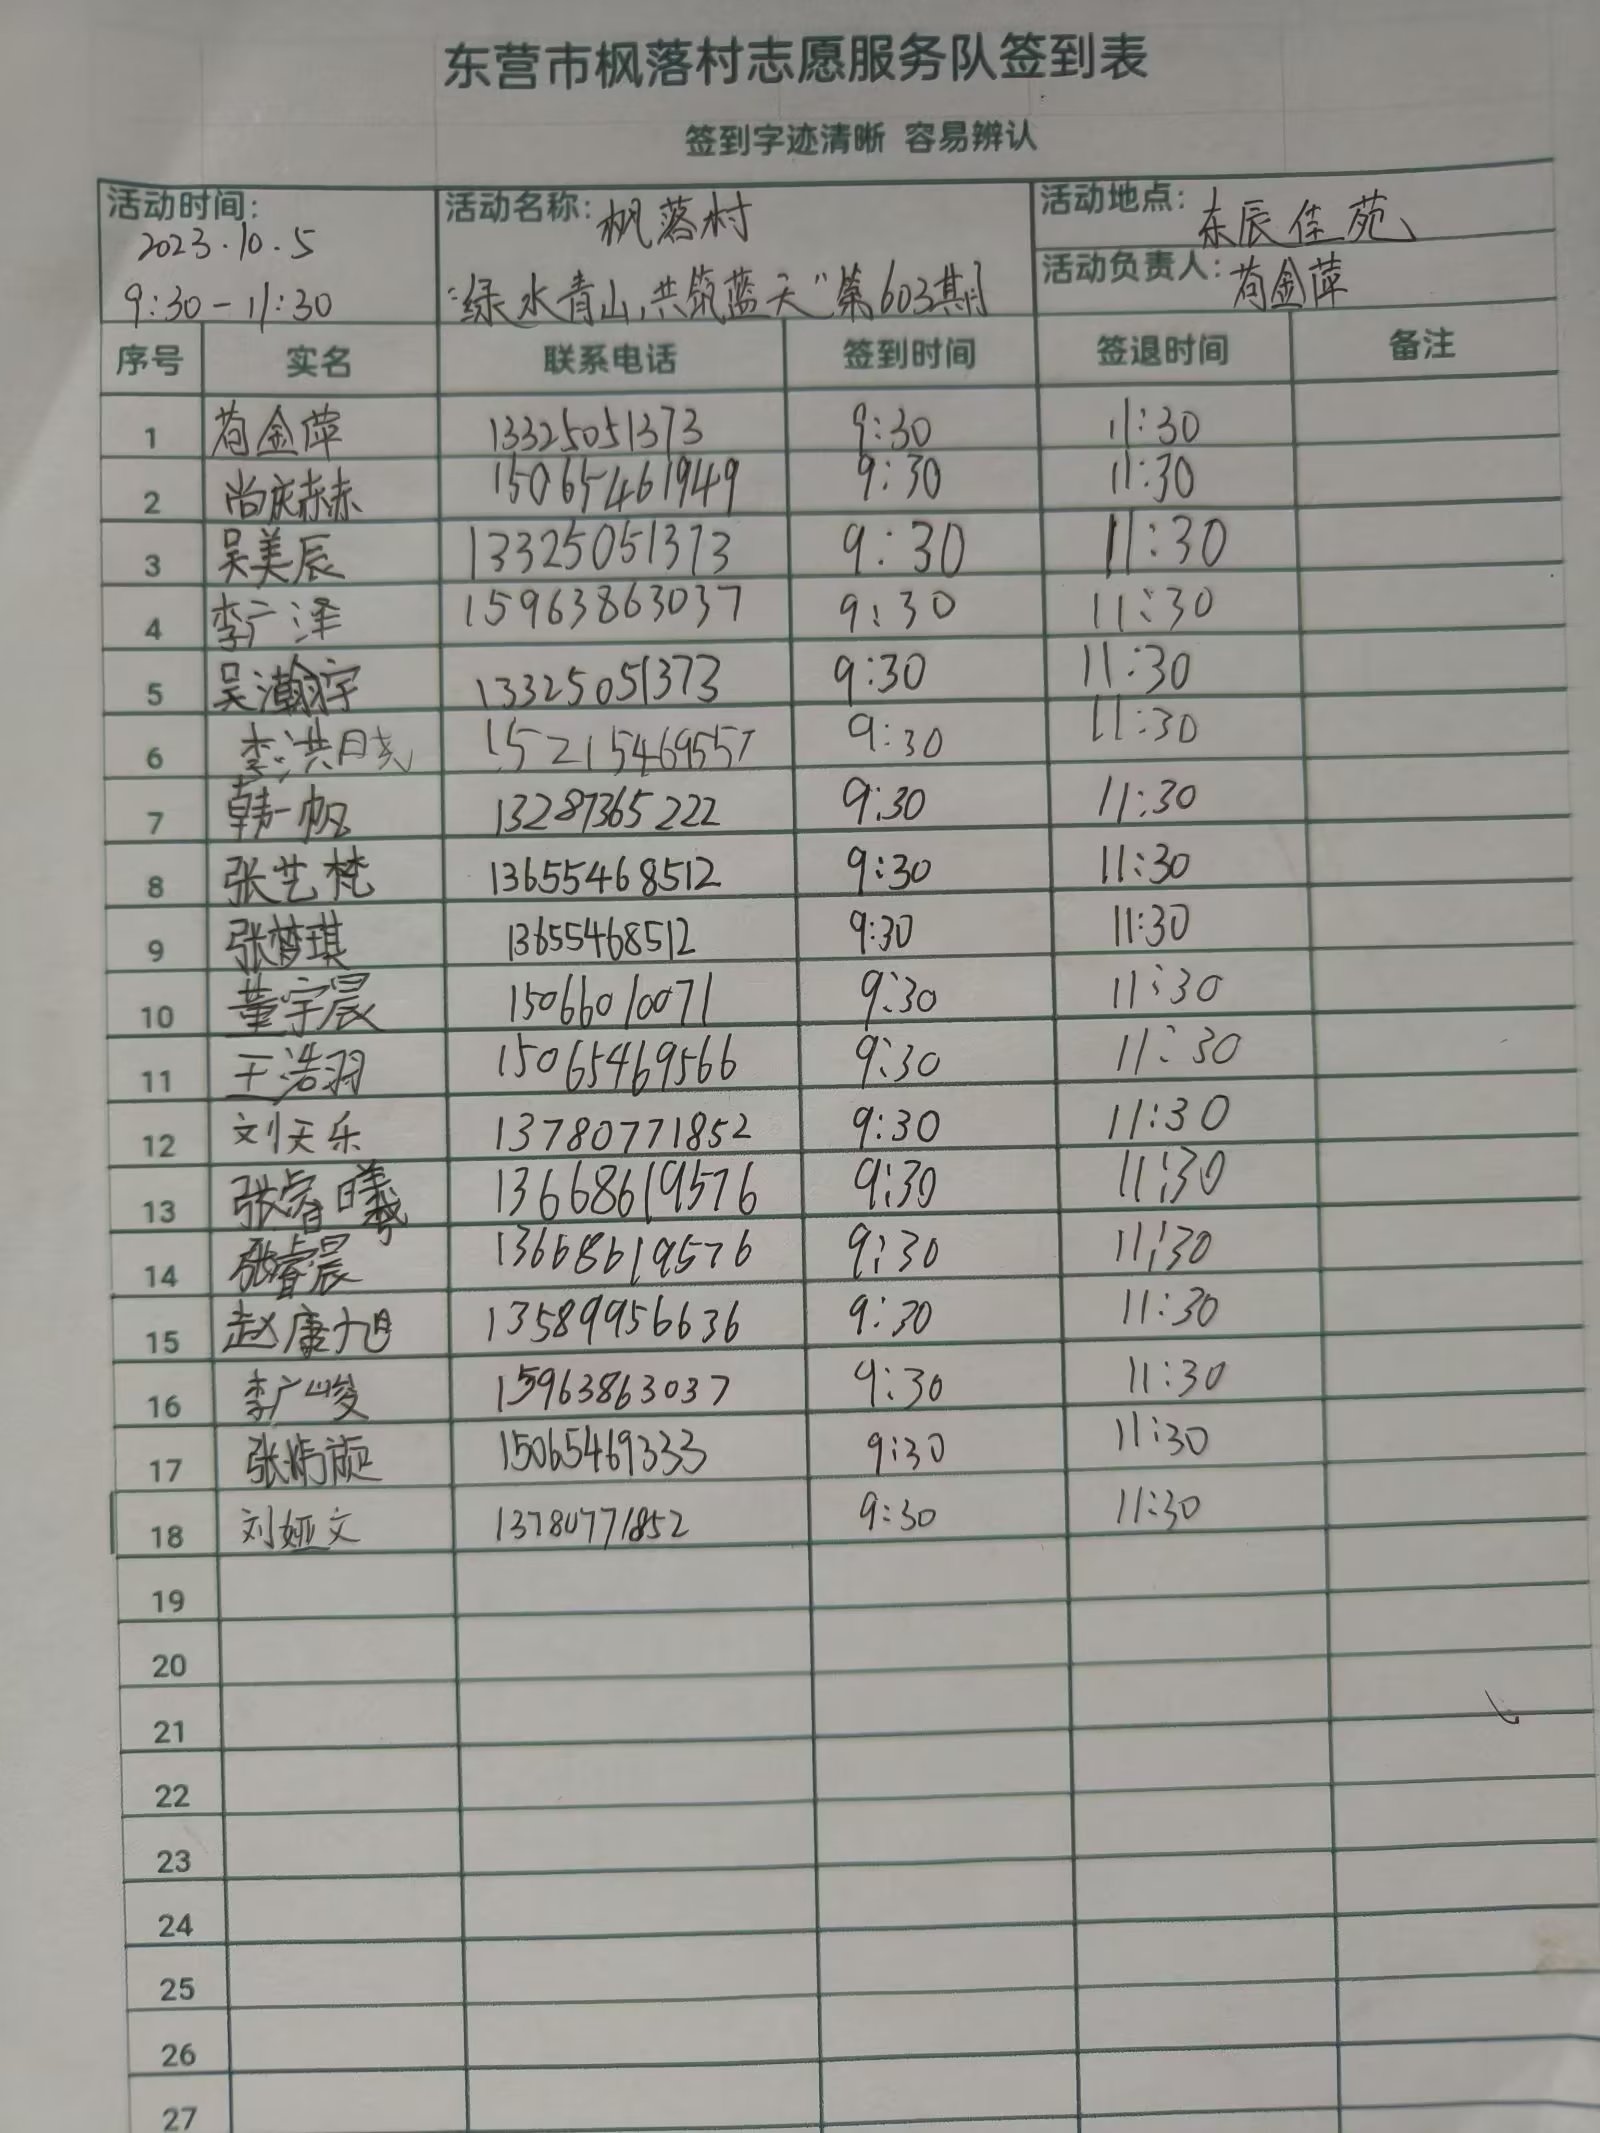 东营市枫落村志愿服务队签到表
签到字迹清晰 容易辨认
活动时间: 2023.10.5 9:30-11:30
活动名称: 枫落村 "绿水青山,共筑蓝天"第603期
活动地点: 东辰佳苑
活动负责人: 荀金萍
序号 实名 联系电话 签到时间 签退时间 备注
1 荀金萍 13325051373 9:30 11:30
2 尚庆赫 15065461949 9:30 11:30
3 吴美辰 13325051373 9:30 11:30
4 李广泽 15963863037 9:30 11:30
5 吴瀚宇 13325051373 9:30 11:30
6 李洪 15215469557 9:30 11:30
7 韩一帆 13287365222 9:30 11:30
8 张艺梵 13655468512 9:30 11:30
9 张梦琪 13655468512 9:30 11:30
10 董宇晨 15066010071 9:30 11:30
11 王浩羽 15065469566 9:30 11:30
12 刘天乐 13780771852 9:30 11:30
13 张睿曦 13668619576 9:30 11:30
14 张睿晨 13668619576 9:30 11:30
15 赵康旭 13589956636 9:30 11:30
16 李广峻 15963863037 9:30 11:30
17 张 15065469333 9:30 11:30
18 刘娅文 13780771852 9:30 11:30
19
20
21
22
23
24
25
26
27